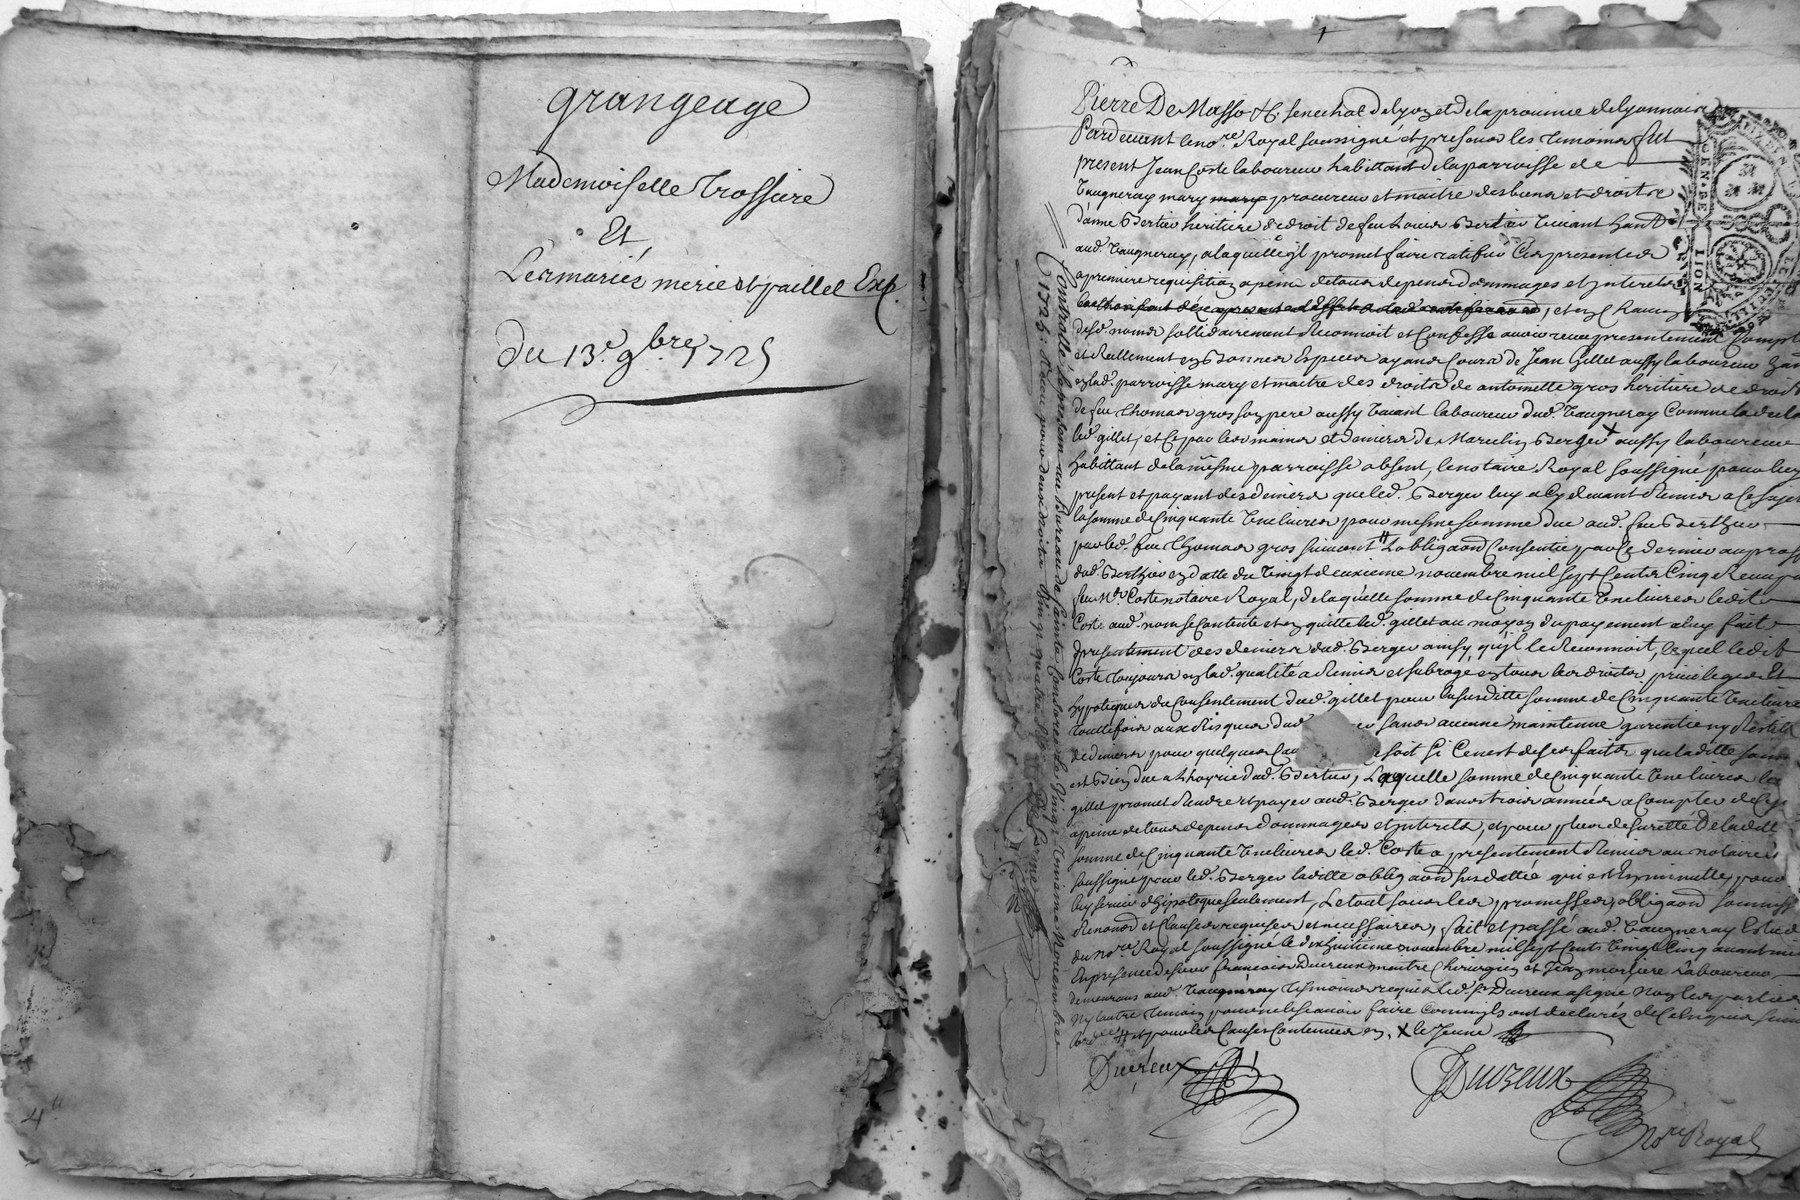 grangeage
Mademoiselle Trossiere
Et
Les mariés merie et paillet Exp.
du 13.e 9bre 1725
4
Pierre De Masso &c. senechal de lyon et de la province de lyonnais
Pardevant le no.re Royal soussigné et presens les temoins fut
present Jean Coste laboureur habittant de la parroisse de
Vaugneray mary mary procureur et maitre des biens et droits
d'anne Bertier heritiere de droit de feu Bertier vivant habt
aud. Vaugneray, a laquelle il promet faire ratifier Ces presentes
a premiere requisition a peine de tous depens dommages et interets
, et en Chacun
desd. noms sollidairement Reconnoit et Confesse avoir receu presentement Compt
et Reellement en Bonnes Especes ayans Cours de Jean Gillet aussy laboureur
en lad. parroisse mary et maitre des droits de antoinette gros heritiere de droit
de feu Thomas gros son pere aussy vivant laboureur dud. Vaugneray
led. gillet, et Ce par les mains et deniers de Berger X aussy laboureur
habittant de la mesme parroisse absent, le notaire Royal soussigné pour luy
present et payant des deniers que led. Berger luy a Cy devant Remis a Ce sujet
la somme de Cinquante livres pour mesme somme due aud. feu Berthier
par led. feu Thomas gros suivant # L'obligaon Consentie par Ce dernier au proffit
dud. Berthier en datte du vingt deuxieme novembre mil sept Cents Cinq Receue par
feu M.e Coste notaire Royal, de laquelle somme de Cinquante livres ledit
Coste aud. nom se Contente et en quitte led. gillet au moyen du payement a luy fait
presentement des deniers dud. Berger ainsy qu'il le Reconnoit, lequel ledit
Coste toujours en lad. qualité a Remis et subrogé en tous les droits, privileges Et
hypoteques du Consentement dud. gillet pour la susditte somme de Cinquante livres
touttefois aux Risques dud. sans aucune maintenue garentie ny Restit
de deniers pour quelque Cau soit si Ce n'est de ses faits que laditte somme
est Bien due a l'hoyrie dud. Bertier, Laquelle somme de Cinquante livres led
gillet promet Rendre et payer aud. Berger dans trois années a Compter de Ce
a peine de tous depens dommages et interets, et pour plus de suretté de laditte
somme de Cinquante livres led. Coste a presentement Remis au notaire
soussigné pour led. Berger laditte obligaon susdattée qui est en minutte, pour
luy servir d'hipoteque seulement, Le tout sous les promisses, obligaons soumiss
Renons et Clauses requises et necessaires, fait et passé aud. Vaugneray Estude
du no.re Royal soussigné le dix huitieme novembre mil sept Cents vingt Cinq avant midi
En presence de sieur francois Ducreux maitre Chirurgien et Jean morliere laboureur
demeurans aud. Vaugneray temoins requis led. s.r Ducreux a signé Non les parties
Ny l'autre temoin pour ne le scavoir faire Comme ils ont declarés de Ce Enquis
# et pour les Causes Contenues en, X le Jeune
Ducreux
Ducreux
No.re Royal
Controllé la presente au Bureau de Sainte Consorce le vingt neuvieme Novembre
1725: Receu pour deux droits vingt quatre
GEN. DE
LION